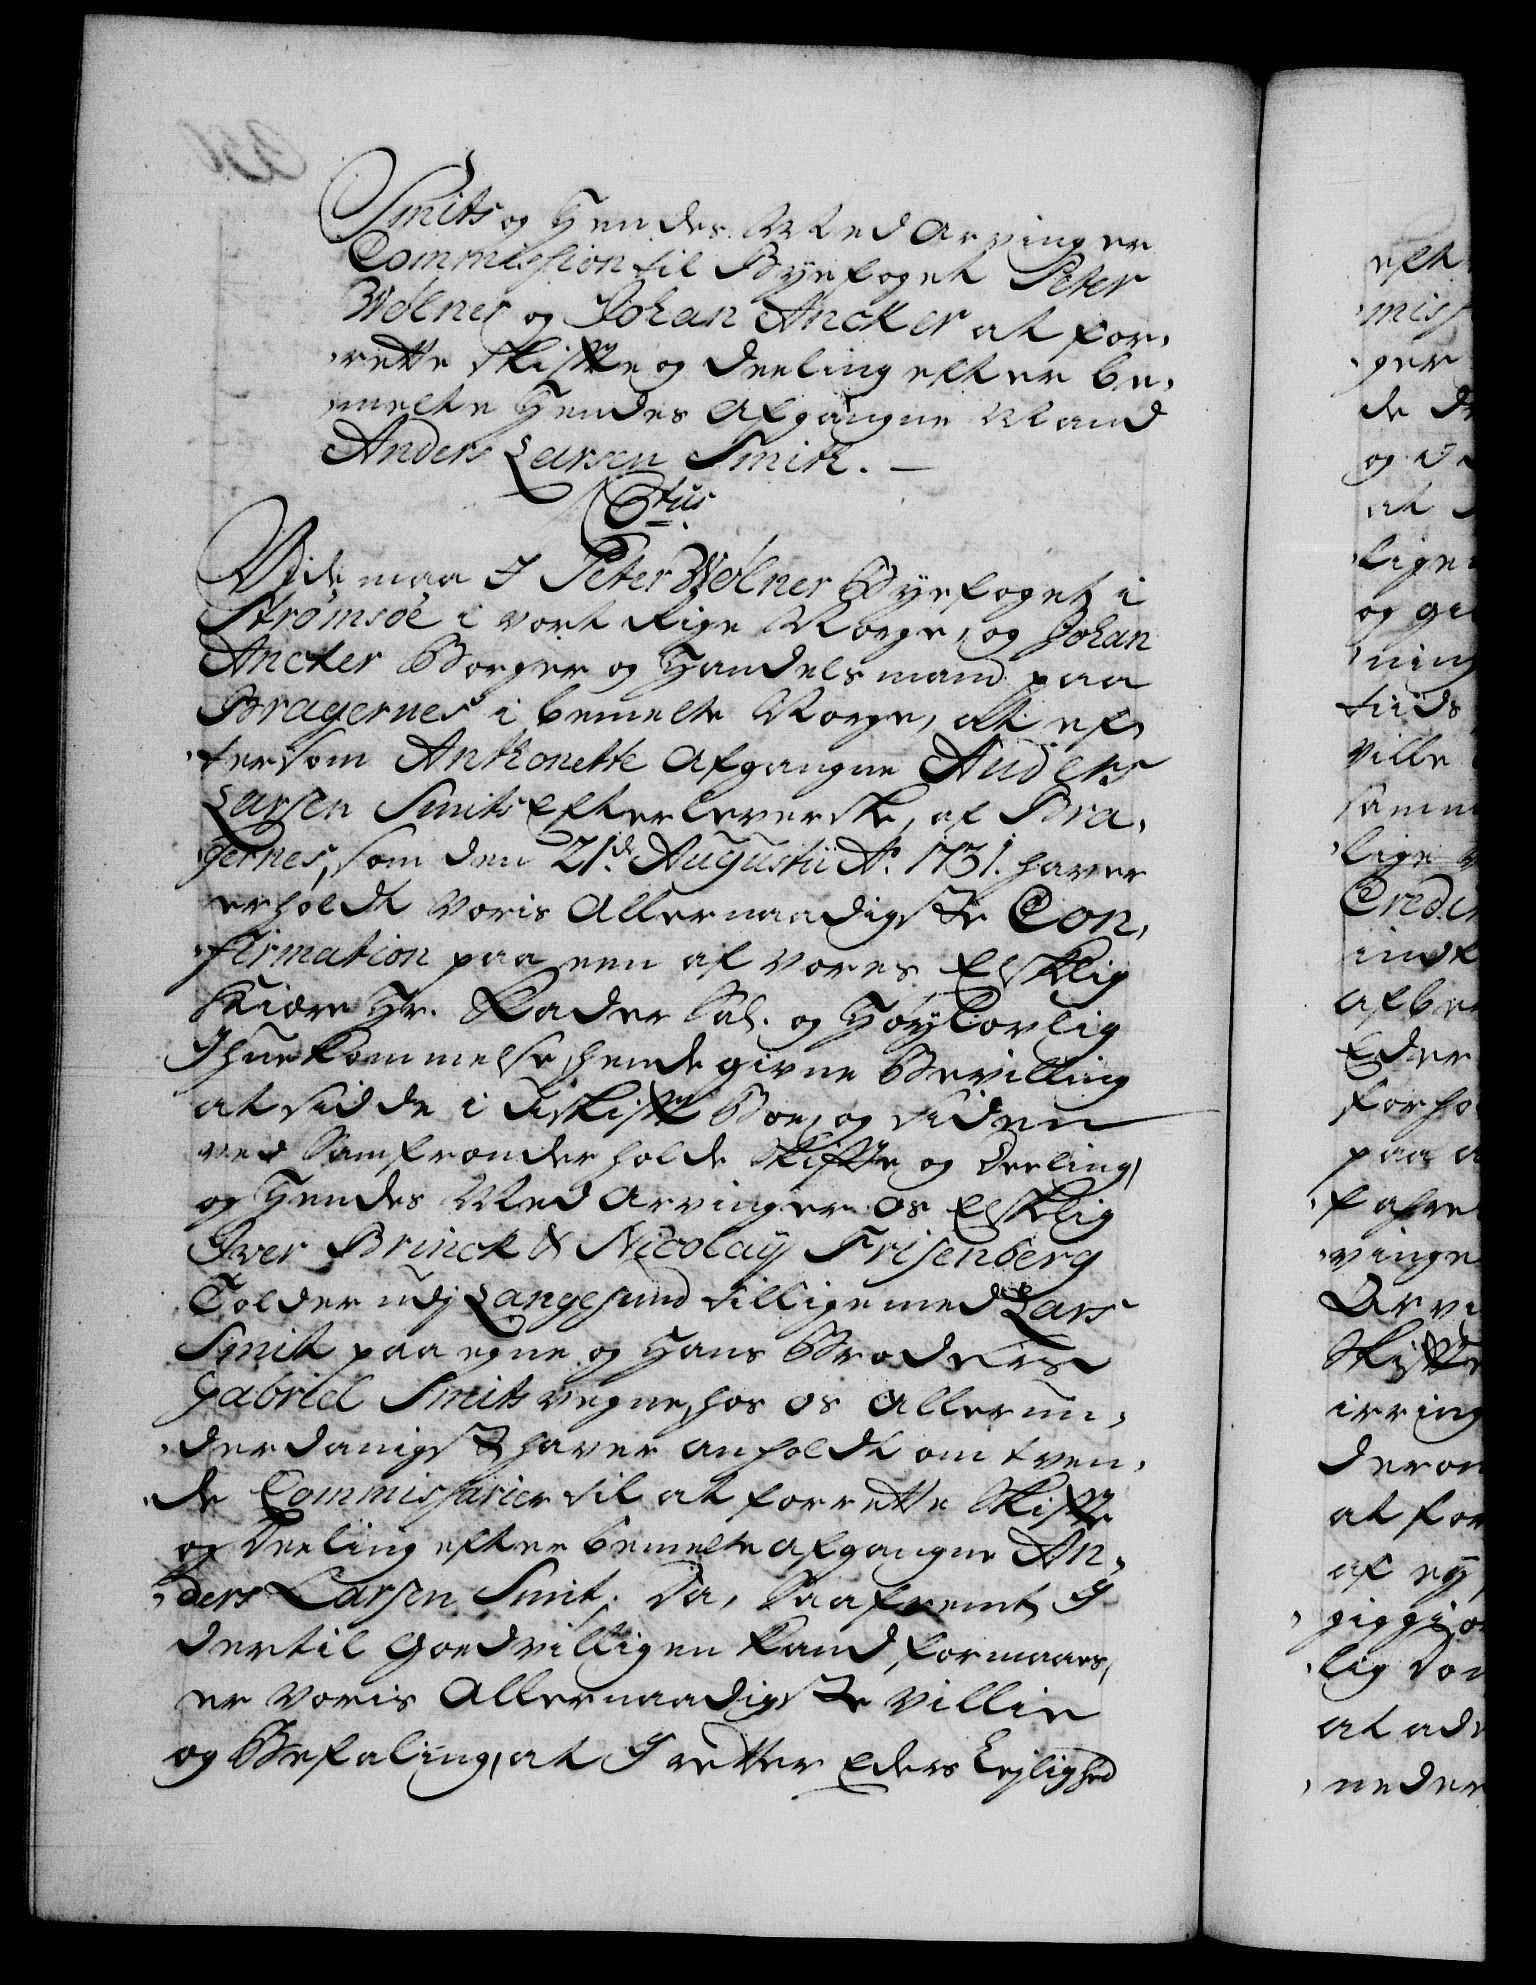 Smits og Hendes Med Arvinger
Commission til Byefoget Peter
Wølner og Johan Ancker at for,
,rette Skifte og Deeling efter be,
,melte Hendes Afgangne Mand
Anders Larsen Smith. —
C6tus
Viide maa I Peter Wølner Byefoget i
Strømsøe i vort Rige Norge, og Johan
Ancker Borger og Handelsmand paa
Bragernes i bemelte Norge, at ef,
,tersom Anthonette Afgangne Anders
Larsen Smits Efterleverske, af Bra,
,gernes, som den 21de Augustii Ao 1731. haver
erholdt voris Allernaadigste Con,
,firmation paa een af vores Elsklig
Kiære Hr. Fader Sal. og Høylovlig
Ihuekommelse, hende givne Bevilling
at sidde i Uskift Boe, og siden
ved Samfrænder holde Skifte og Deeling,
og Hendes Med Arvinger os Elsklig
Iver Brinck & Nicolaÿ Frisenberg
Tolder udj Langesund tilligemed Lars
Smith paa egne og Hans Broders
Gabriel Smits vegne, hos os Allerun,
,derdanigst haver anholdt om tven,
,de Commissarier til at forrette Skifte
og Deeling efter bemelte afgangne An,
,ders Larsen Smit; Da, Saafremt I
dertil Goedvilligen kand formaaes,
er voris Allernaadigste Villie
og Befaling, at I retter Eders Lejlighed
efter
miss
,ger
de
og
at
,lige
og gi
,ning
tiids
ville
samm
,lige
Credit
indk
afbe
Eder
forho
paa
,fahre
,vinge
Arvi
Skifte
irring
deron
at for
af eÿ
,giggi
,lig Dom
at ad
,neder